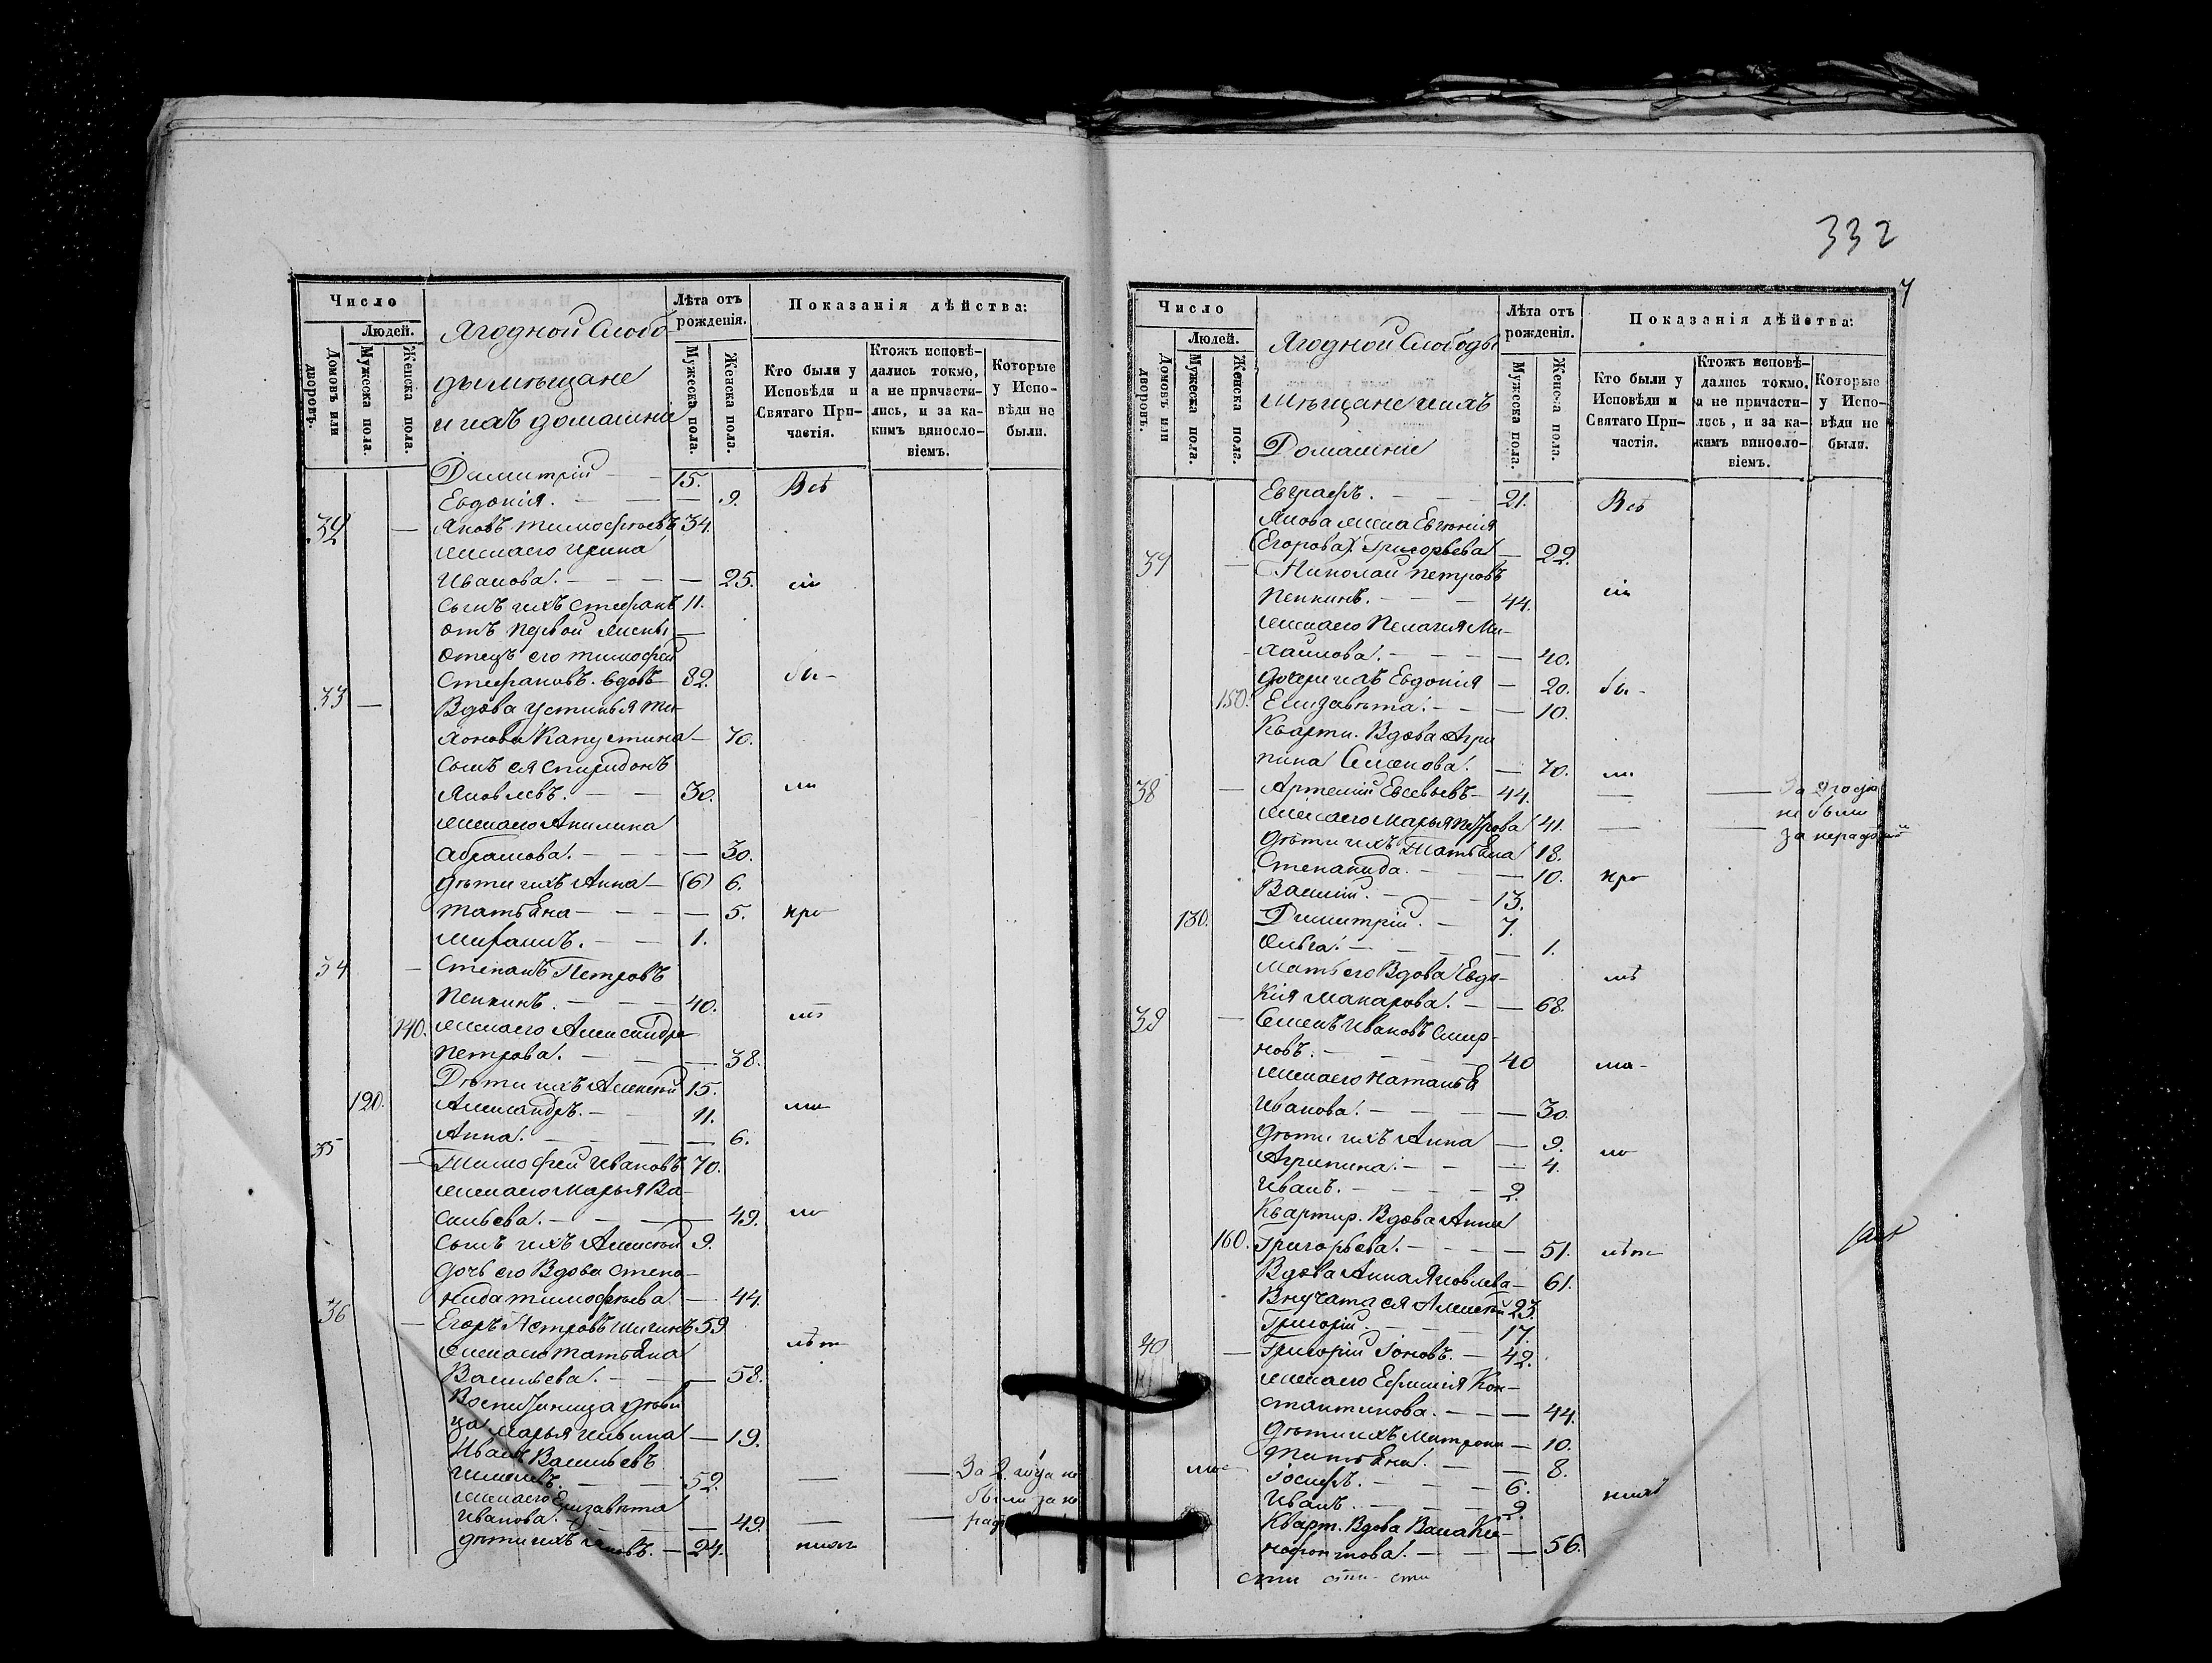 Число
Людей.
Домовъ или дворовъ.
Мужеска пола.
Женска пола.
Ягодной Слобо-
ды мѣщане
и ихъ домашніе
Лѣта отъ рожденія.
Мужеска пола.
Женска пола.
Показанія дѣйства:
Кто были у Исповѣди и Святаго При-частія.
Ктожъ исповѣ-дались токмо, а не причасти-лись, и за ка-кимъ винosло-віемъ.
Которые у Испо-вѣди не были.
Димитрій — 15. Всѣ
Евдокія. — — 9.
32 — Яковъ Тимофѣевъ 34.
жена его Ирина
Иванова. — — 25.
сынъ ихъ Стефанъ 11.
отъ первой жены —
отецъ его Тимофей
Стефановъ. вдовъ 82. бы-
33 — Вдова Устинья Ти-
хонова Капустина — 70.
сынъ ея Спиридонъ
Яковлевъ. — 30. ли
жена его Акилина
Абрамова. — — 30.
дѣти ихъ Анна — (6) 6.
Татьяна — — 5. при
1.
34 — Степанъ Петровъ
Пепкинъ. — 40.
140. жена его Александра
Петрова. — — 38.
Дѣти ихъ Алексѣй 15.
120. Александръ. — 11.
Анна. — — 6.
35 — Тимофей Ивановъ 70.
жена его Марья Ва-
сильева. — — 49.
сынъ ихъ Алексѣй 9.
дочь его Вдова Степа-
нида Тимофѣева — 44.
36 — Егоръ Петровъ Шигинъ 59
жена его Татьяна
Васильева. — — 58.
дѣви
ца Марья — 19.
Иванъ Васильевъ
52. — — За 2 года не
жена его Елизавета были за не
Иванова. — — 49. — — рад
дѣти ихъ Яковъ. — 24.
332
7
Число
Людей.
Домовъ или дворовъ.
Мужеска пола.
Женска пола.
Ягодной Слободы
Мѣщане и ихъ
Домашніе
Лѣта отъ рожденія.
Мужеска пола.
Женска пола.
Показанія дѣйства:
Кто были у Исповѣди и Святаго При-частія.
Ктожъ исповѣ-дались токмо, а не причасти-лись, и за ка-кимъ винosло-віемъ.
Которые у Испо-вѣди не были.
Евграфъ. — 21. Всѣ
Якова жена Евгенія
(Егорова) Григорьева — 22.
37 — Николай Петровъ
Пепкинъ. — 44. сіи
жена его Пелагея Ми-
хайлова. — — 40.
дочери ихъ Евдокія — 20. бы-
150. Елизавета. — — 10.
Кварти. Вдова Агри
пина Семенова. — 70. ли
38 — Артемій Евсевьевъ — 44. — — За 2 года
жена его Марья Петрова 41. — — не были
дѣти ихъ Татьяна 18. за нерадѣніе
Степанида. — — 10. при
Василій. — 13.
130. Димитрій. — 7.
Ольга. — — 1.
Мать его Вдова Евдо-
кія Макарова. — — 68.
39 — Семенъ Ивановъ Смир-
новъ. — 40
жена его Наталья
Иванова. — — 30.
дѣти ихъ Анна — 9.
Агрипина. — — 4.
Иванъ. — 2.
Квартир. Вдова Анна
160. Григорьева. — — 51.
Вдова Анна Яковлева — 61.
Внучата ея Алексѣй 23.
Григорій. — 17.
40 — Григорій Іоновъ. — 42.
жена его Ефимія Кон-
стантинова. — — 44.
дѣти ихъ Матрона — 10.
Татьяна. — — 8.
Іосифъ. — 6.
Иванъ. — 2.
Кварт. Вдова Васса Ки-
— 56.